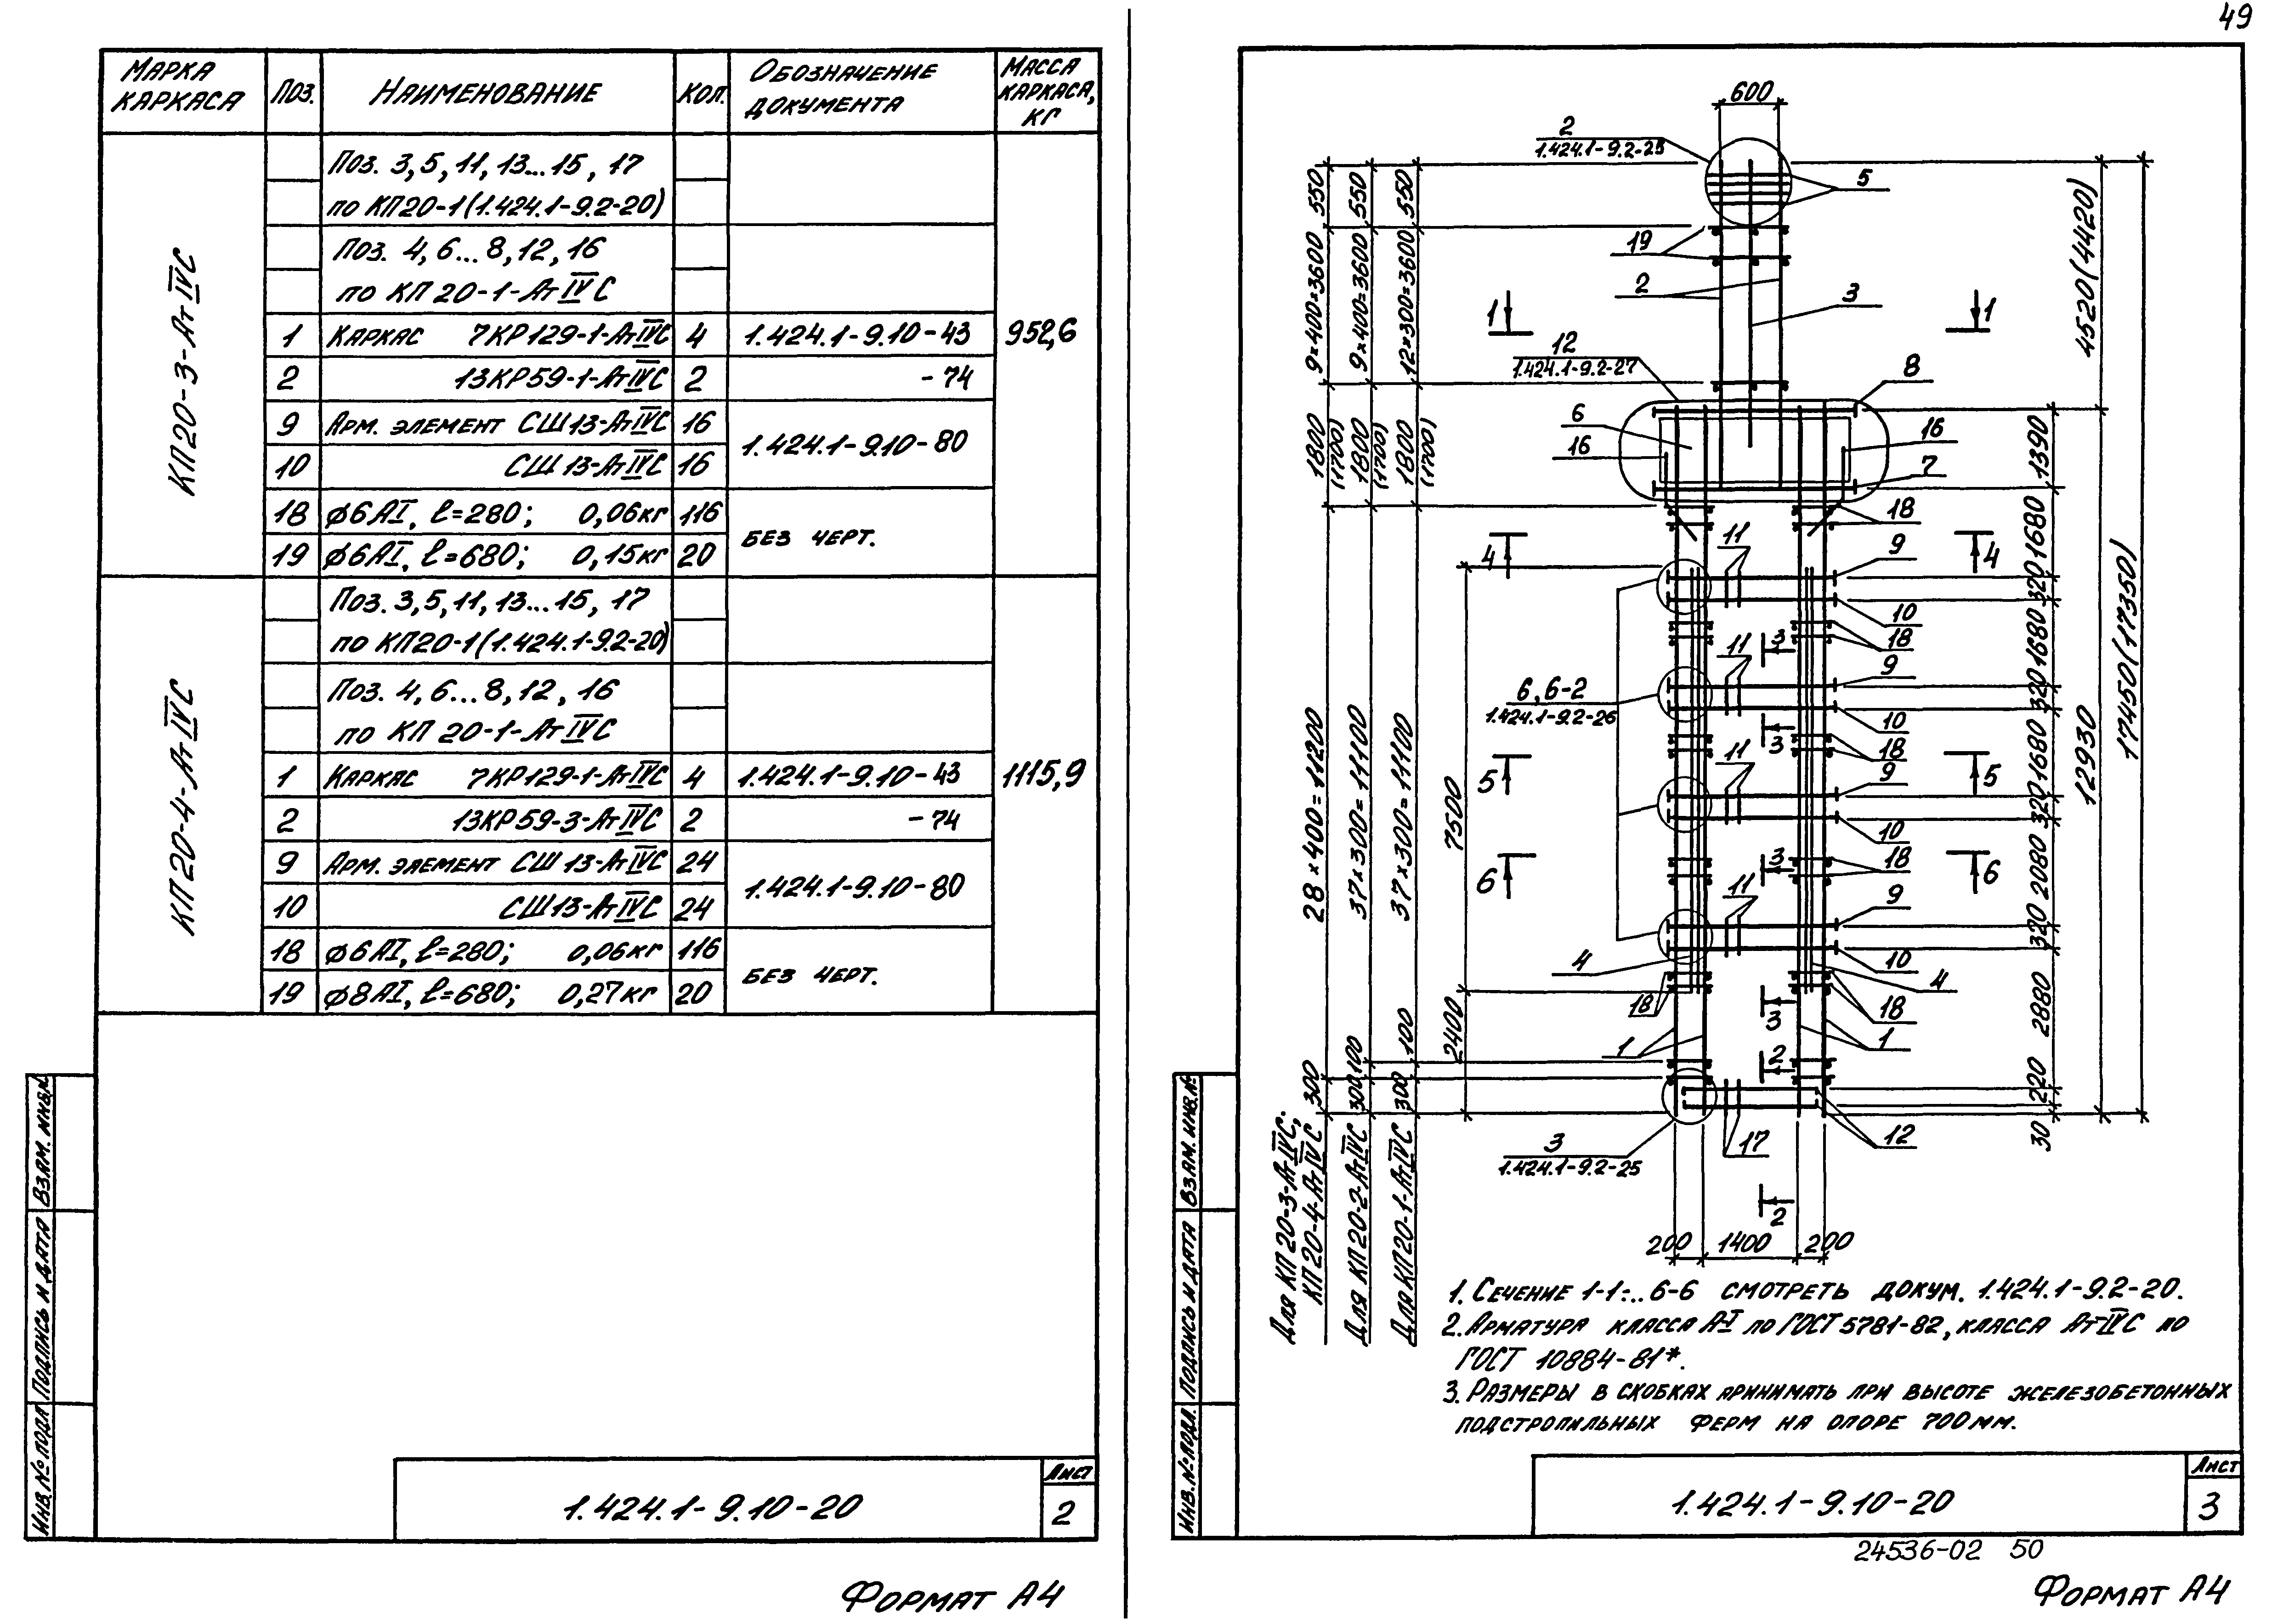 49
Марка каркаса
Поз.
Наименование
Кол.
Обозначение документа
Масса каркаса, кг
КП20-3-АтIVС
Поз. 3, 5, 11, 13...15, 17
по КП20-1(1.424.1-9.2-20)
Поз. 4, 6...8, 12, 16
по КП 20-1-АтIVС
1 Каркас 7КР129-1-АтIVС 4 1.424.1-9.10-43 952,6
2 13КР59-1-АтIVС 2 -74
9 Арм. элемент СШ13-АтIVС 16 1.424.1-9.10-80
10 СШ13-АтIVС 16
18 ø6АI, ℓ=280; 0,06кг 116 без черт.
19 ø6АI, ℓ=680; 0,15кг 20
КП20-4-АтIVС
Поз. 3, 5, 11, 13...15, 17
по КП20-1(1.424.1-9.2-20)
Поз. 4, 6...8, 12, 16
по КП 20-1-АтIVС
1 Каркас 7КР129-1-АтIVС 4 1.424.1-9.10-43 1115,9
2 13КР59-3-АтIVС 2 -74
9 Арм. элемент СШ13-АтIVС 24 1.424.1-9.10-80
10 СШ13-АтIVС 24
18 ø6АI, ℓ=280; 0,06кг 116 без черт.
19 ø8АI, ℓ=680; 0,27кг 20
Взам. инв.№
Подпись и дата
Инв.№ подл.
1.424.1-9.10-20
Лист
2
Формат А4
600
2
1.424.1-9.2-25
5
19
2
3
1 1
12
1.424.1-9.2-27
8
6
16
16
7
18
11
9
4 4
10
18
11
3
9
6, 6-2
1.424.1-9.2-26
10
18
3
11
9
5 5
10
18
3
6 6
11
9
4
10
4
18
18
3
1
1
2
3
1.424.1-9.2-25
17
12
2
200 1400 200
550 9×400=3600 1800 (1700) 28×400=11200 300
Для КП20-3-АтIVС;
КП20-4-АтIVС
550 9×400=3600 1800 (1700) 37×300=11100 100 300
Для КП20-2-АтIVС
550 12×300=3600 1800 (1700) 37×300=11100 100 300
Для КП20-1-АтIVС
7500 2400
1390 1680 320 1680 320 1680 320 2080 320 2880 220 30
4520(4420) 12930
17450(17350)
1. Сечение 1-1... 6-6 смотреть докум. 1.424.1-9.2-20.
2. Арматура класса А-I по ГОСТ 5781-82, класса Ат-IVС по
ГОСТ 10884-81*.
3. Размеры в скобках принимать при высоте железобетонных
подстропильных ферм на опоре 700мм.
Взам. инв.№
Подпись и дата
Инв.№ подл.
1.424.1-9.10-20
Лист
3
24536-02 50
Формат А4